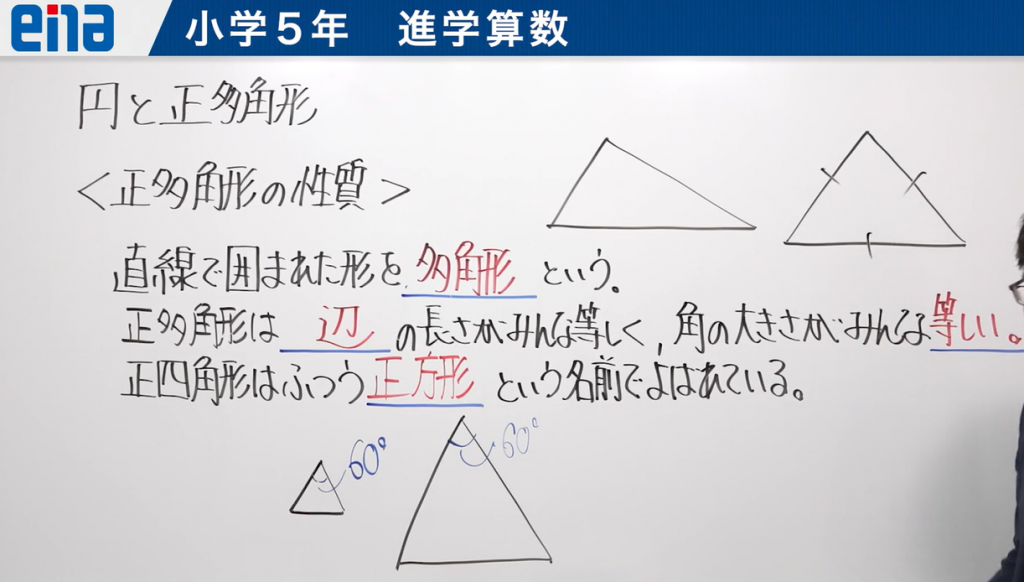 ena 小学5年 進学算数
円と正多角形
<正多角形の性質>
直線で囲まれた形を多角形という。
正多角形は辺の長さがみんな等しく,角の大きさがみんな等しい。
正四角形はふつう正方形という名前でよばれている。
60°
60°